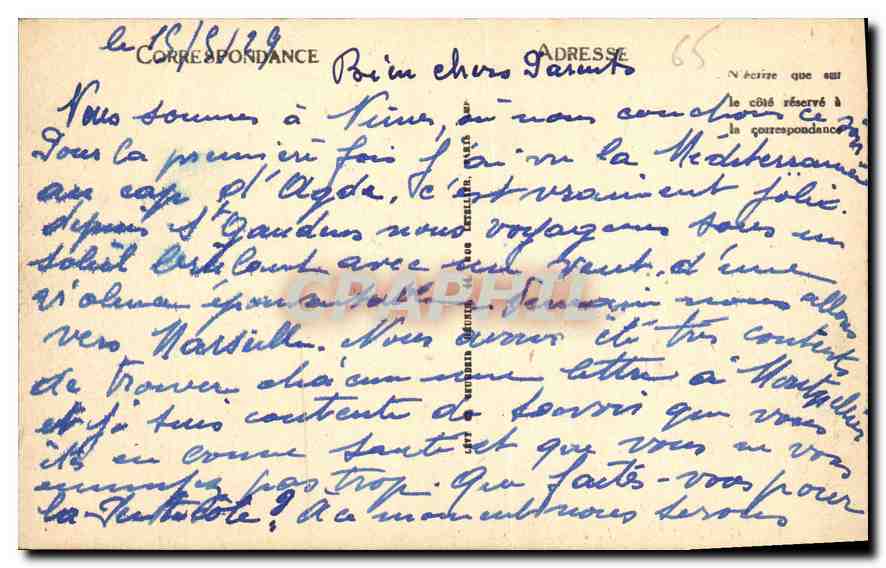 le 15/5/29
CORRESPONDANCE
ADRESSE
65
Bien chers Parents
N'écrire que sur
le côté réservé à
la correspondance
Nous sommes à Nimes, où nous couchons ce soir
Pour la première fois j'ai vu la Méditerranée
au cap d'Agde, c'est vraiment joli.
depuis St Gaudens nous voyageons sous un
soleil brûlant avec un vent d'une
violence épouvantable. Demain nous allons
vers Marseille. Nous avons été très contents
de trouver chacun une lettre à Montpellier
et je suis contente de savoir que vous
êtes en bonne santé et que vous ne vous
ennuyez pas trop. Que faites-vous pour
la Pentecôte? À ce moment nous serons
LÉVY ET NEURDEIN RÉUNIS, 44, RUE LETELLIER, PARIS
CPAPHIL